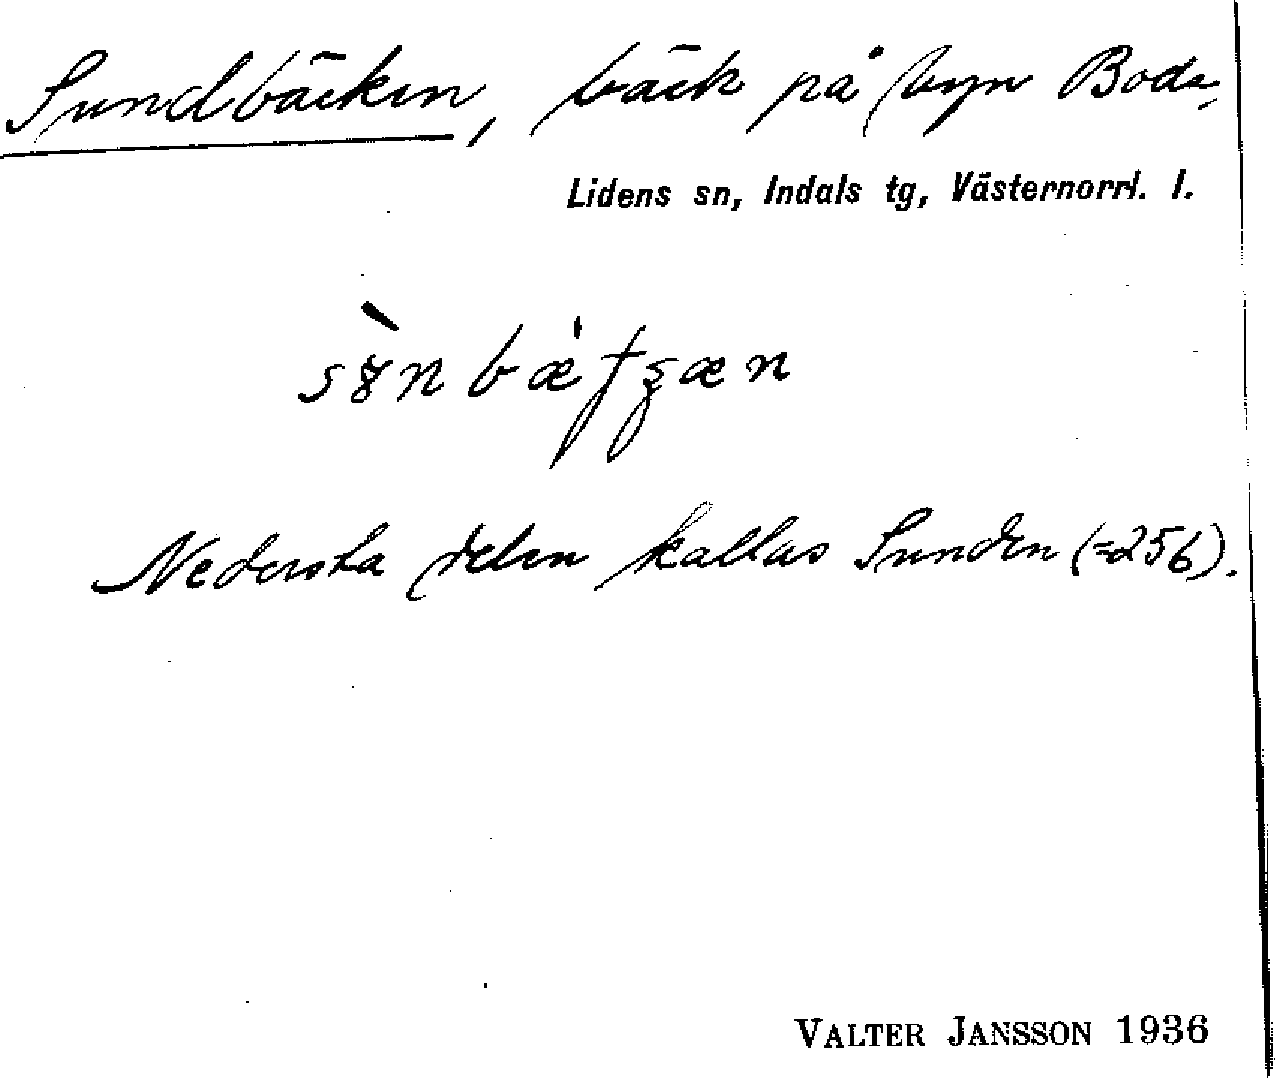 Sundbäcken, bäck på byn Boda,
Lidens sn, Indals tg, Västernorrl. l.
Nedersta delen kallas Sunden (=256).
VALTER JANSSON 1936